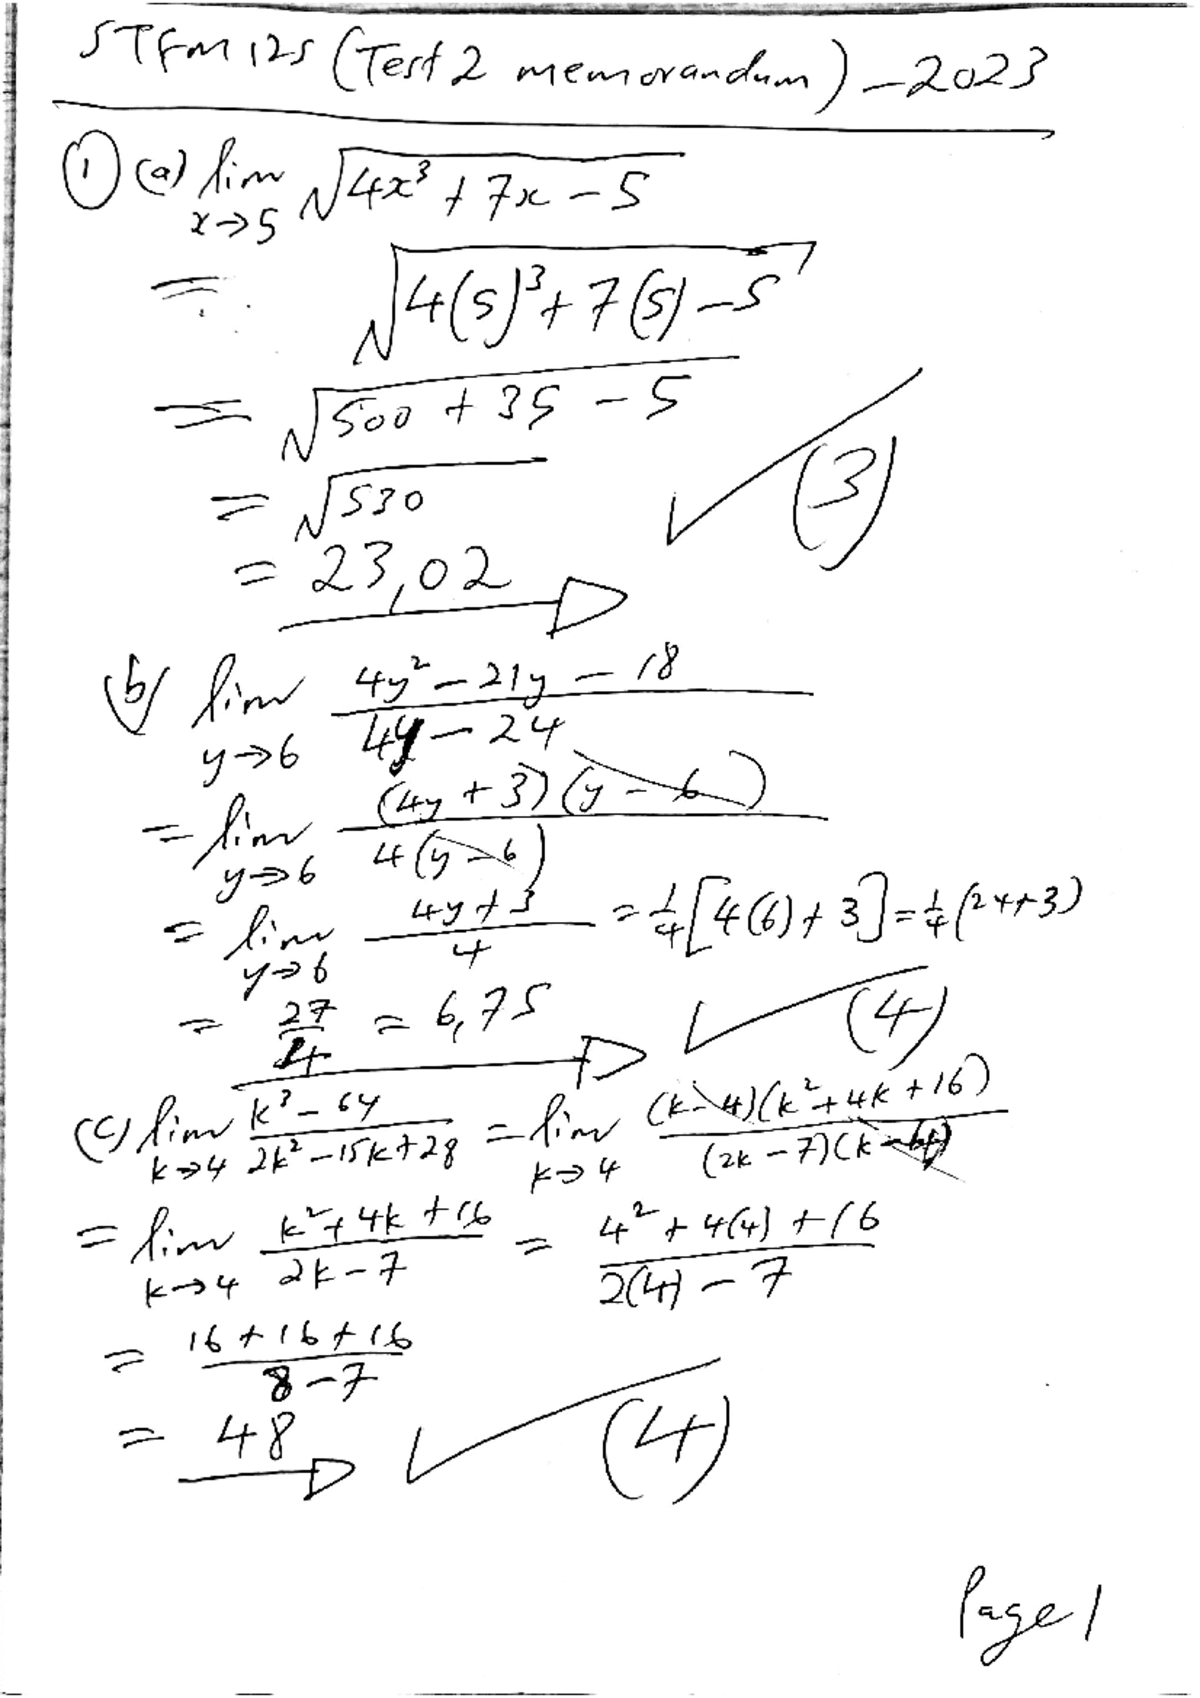 STFM12S (Test 2 memorandum) – 2023
① (a) lim x→5 √(4x³ + 7x – 5)
= √(4(5)³ + 7(5) – 5)
= √(500 + 35 – 5)
= √530
= 23,02
(3)
(b) lim y→6 (4y² – 21y – 18)/(4y – 24)
= lim y→6 (4y + 3)(y – 6)/4(y – 6)
= lim y→6 (4y + 3)/4 = 1/4[4(6) + 3] = 1/4(24+3)
= 27/4 = 6,75
(4)
(c) lim k→4 (k³ – 64)/(2k² – 15k + 28) = lim k→4 (k – 4)(k² + 4k + 16)/(2k – 7)(k – 4)
= lim k→4 (k² + 4k + 16)/(2k – 7) = (4² + 4(4) + 16)/(2(4) – 7)
= (16 + 16 + 16)/(8 – 7)
= 48
(4)
Page 1